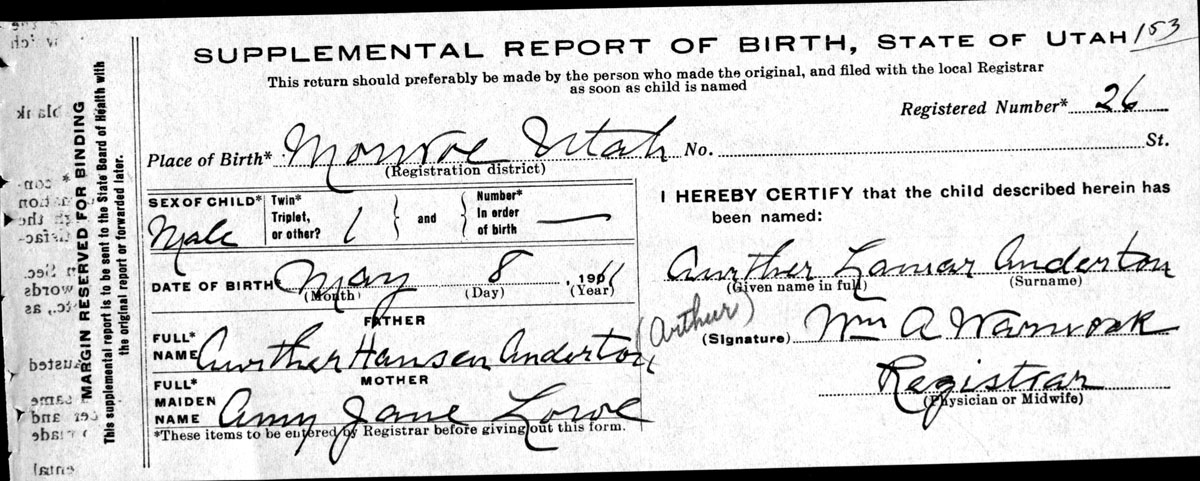 SUPPLEMENTAL REPORT OF BIRTH, STATE OF UTAH 153
This return should preferably be made by the person who made the original, and filed with the local Registrar
as soon as child is named
Registered Number* 26
Place of Birth* Monroe Utah No. St.
(Registration district)
SEX OF CHILD* Male
Twin* Triplet, or other? / } and { Number* In order of birth —
DATE OF BIRTH May 8, 19
(Month) (Day) (Year)
FATHER
FULL* NAME Aurther Hansen Anderton
(Arthur)
MOTHER
FULL* MAIDEN NAME Amy Jane Lowe
*These items to be entered by Registrar before giving out this form.
I HEREBY CERTIFY that the child described herein has
been named:
Aurther Lamar Anderton
(Given name in full) (Surname)
(Signature) Wm A Warnock
Registrar
(Physician or Midwife)
MARGIN RESERVED FOR BINDING
This supplemental report is to be sent to the State Board of Health with
the original report or forwarded later.